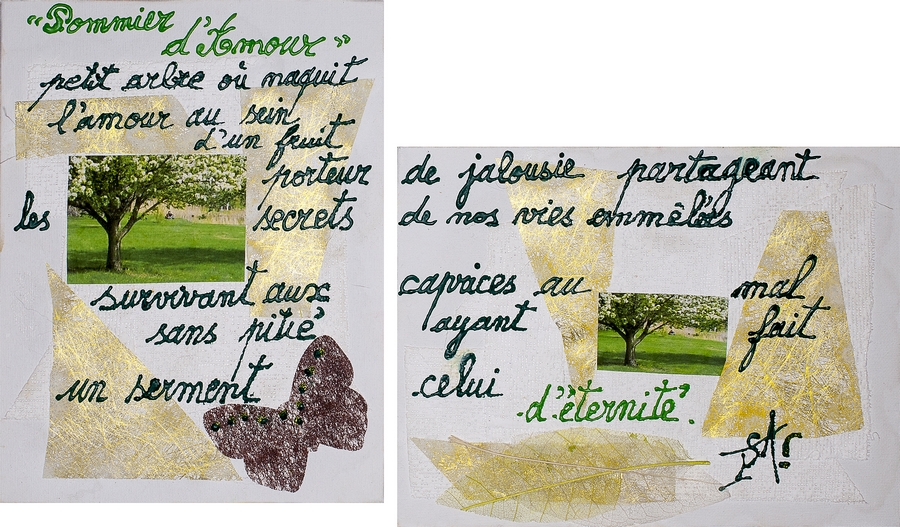 “Pommier
d'Amour”
petit arbre où naquit
l'amour au sein
d'un fruit
porteur
les secrets
survivant aux
sans pitié
un serment
de jalousie partageant
de nos vies emmêlées
caprices au mal
ayant fait
celui
d'éternité.